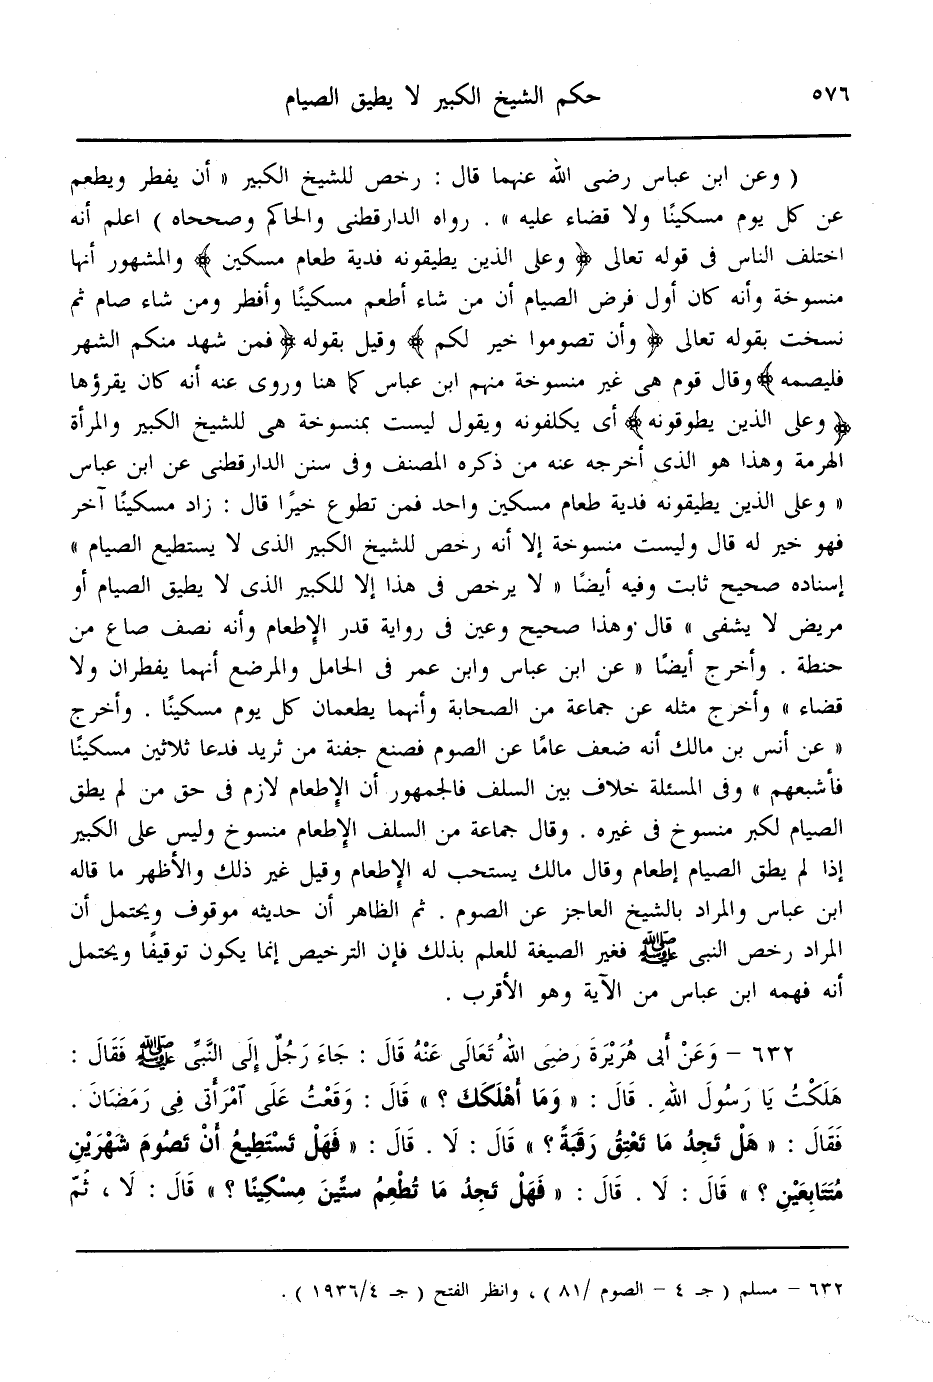 ٥٧٦ حكم الشيخ الكبير لا يطيق الصيام
( وعن ابن عباس رضى الله عنهما قال : رخص للشيخ الكبير « أن يفطر ويطعم
عن كل يوم مسكينًا ولا قضاء عليه » . رواه الدارقطنى والحاكم وصححاه ) اعلم أنه
اختلف الناس فى قوله تعالى ﴿ وعلى الذين يطيقونه فدية طعام مسكين ﴾ والمشهور أنها
منسوخة وأنه كان أول فرض الصيام أن من شاء أطعم مسكينًا وأفطر ومن شاء صام ثم
نسخت بقوله تعالى ﴿ وأن تصوموا خير لكم ﴾ وقيل بقوله ﴿ فمن شهد منكم الشهر
فليصمه ﴾ وقال قوم هى غير منسوخة منهم ابن عباس كما هنا وروى عنه أنه كان يقرؤها
﴿ وعلى الذين يطوقونه ﴾ أى يكلفونه ويقول ليست بمنسوخة هى للشيخ الكبير والمرأة
الهرمة وهذا هو الذى أخرجه عنه من ذكره المصنف وفى سنن الدارقطنى عن ابن عباس
« وعلى الذين يطيقونه فدية طعام مسكين واحد فمن تطوع خيرًا قال : زاد مسكينًا آخر
فهو خير له قال وليست منسوخة إلا أنه رخص للشيخ الكبير الذى لا يستطيع الصيام »
إسناده صحيح ثابت وفيه أيضًا « لا يرخص فى هذا إلا للكبير الذى لا يطيق الصيام أو
مريض لا يشفى » قال وهذا صحيح وعين فى رواية قدر الإطعام وأنه نصف صاع من
حنطة . وأخرج أيضًا « عن ابن عباس وابن عمر فى الحامل والمرضع أنهما يفطران ولا
قضاء » وأخرج مثله عن جماعة من الصحابة وأنهما يطعمان كل يوم مسكينًا . وأخرج
« عن أنس بن مالك أنه ضعف عامًا عن الصوم فصنع جفنة من ثريد فدعا ثلاثين مسكينًا
فأشبعهم » وفى المسئلة خلاف بين السلف فالجمهور أن الإطعام لازم فى حق من لم يطق
الصيام لكبر منسوخ فى غيره . وقال جماعة من السلف الإطعام منسوخ وليس على الكبير
إذا لم يطق الصيام إطعام وقال مالك يستحب له الإطعام وقيل غير ذلك والأظهر ما قاله
ابن عباس والمراد بالشيخ العاجز عن الصوم . ثم الظاهر أن حديثه موقوف ويحتمل أن
المراد رخص النبى ﷺ فغير الصيغة للعلم بذلك فإن الترخيص إنما يكون توقيفًا ويحتمل
أنه فهمه ابن عباس من الآية وهو الأقرب .
٦٣٢ – وَعَنْ أَبِى هُرَيْرَةَ رَضِىَ اللهُ تَعَالَى عَنْهُ قَالَ : جَاءَ رَجُلٌ إِلَى النَّبِىِّ ﷺ فَقَالَ :
هَلَكْتُ يَا رَسُولَ اللهِ. قَالَ : « وَمَا أَهْلَكَكَ ؟ » قَالَ : وَقَعْتُ عَلَى آمْرَأَتِى فِى رَمَضَانَ .
فَقَالَ : « هَلْ تَجِدُ مَا تَعْتِقُ رَقَبَةً ؟ » قَالَ : لَا . قَالَ : « فَهَلْ تَسْتَطِيعُ أَنْ تَصُومَ شَهْرَيْنِ
مُتَتَابِعَيْنِ ؟ » قَالَ : لَا . قَالَ : « فَهَلْ تَجِدُ مَا تُطْعِمُ سِتِّينَ مِسْكِينًا ؟ » قَالَ : لَا ، ثُمّ
٦٣٢ – مسلم ( جـ ٤ – الصوم /٨١ ) ، وانظر الفتح ( جـ ١٩٣٦/٤ ) .